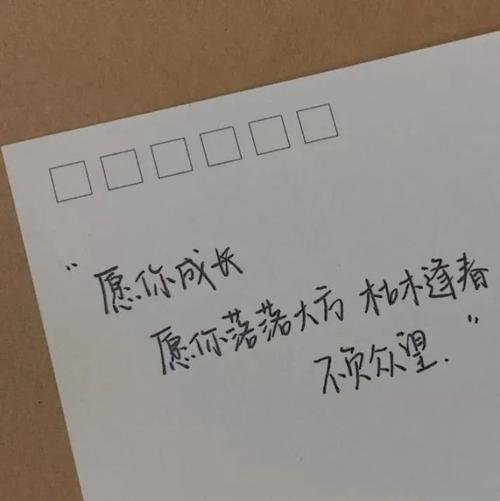 "愿你成长
愿你落落大方 枯木逢春
不负众望."